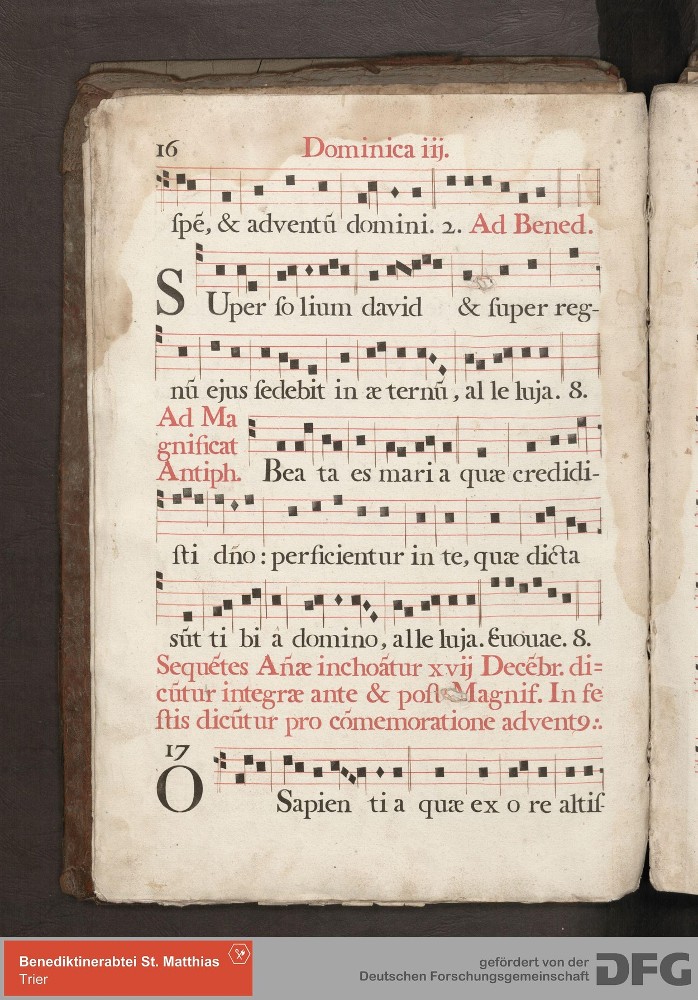 16 Dominica iij.
ſpẽ, & adventũ domini. 2. Ad Bened.
SUper ſo lium david & ſuper reg-
nũ ejus ſedebit in æ ternũ, al le luja. 8.
Ad Ma
gnificat
Antiph. Bea ta es mari a quæ credidi-
ſti dño: perficientur in te, quæ dicta
sũt ti bi à domino, alle luja. Euouae. 8.
Sequẽtes Añæ inchoãtur xvij Decẽbr. di=
cũtur integræ ante & poſt Magnif. In fe
ſtis dicũtur pro cõmemoratione advent9:.
17
O Sapien ti a quæ ex o re altiſ-
Benediktinerabtei St. Matthias
Trier
gefördert von der
Deutschen Forschungsgemeinschaft
DFG